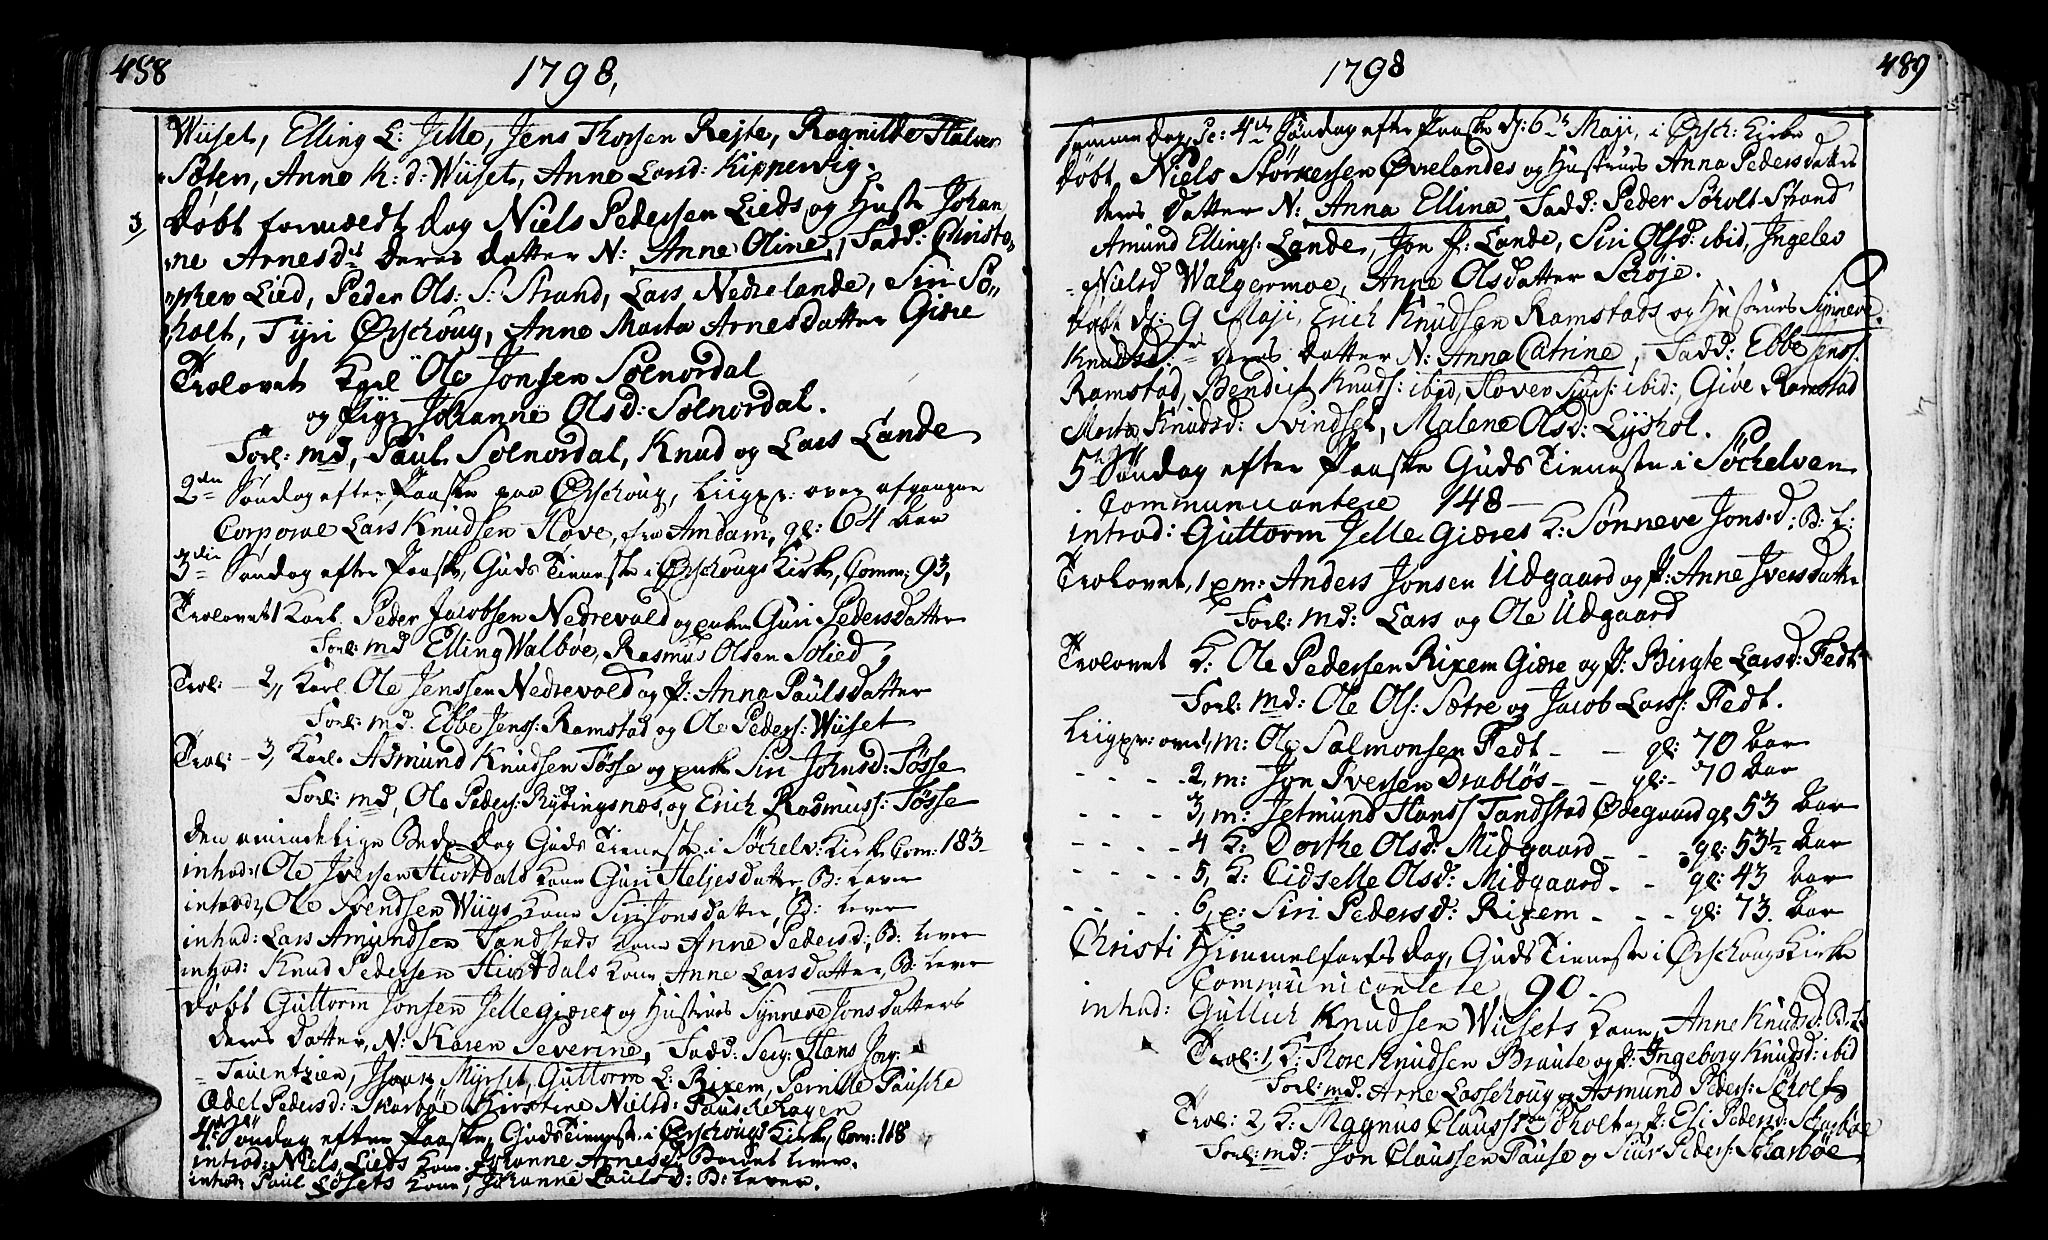 488
1798,
Wiiset, Elling L: Jelle, Jens Thorsen Rejte, Ragnilde Halvor
Søten, Anne K:d: Wiiset, Anne Larsd: Kippervig.
3,
Døbt formeldt dag Niels Pedersen Lieds og Hustr Johan
ne Arnesd: deres datter N: Anne Oline, Fadd: Christo
pher Lied, Peder Ols: S: Strand, Lars Nedrelande, Siri Sø
holt, Tyri Ørschoug, Anne Marta Arnesdatter Giære
Trolovet Karl Ole Jonsen Solnordal
og Pige Johanne Olsd: Solnordal.
Forl: md, Paul Solnordal, Knud og Lars Lande
2den Søndag efter Paaske paa Ørschoug, Liigpr: over afgangne
Corporal Lars Knudsen Hove, fra Amdam, gl: 64 Aar
3die Søndag efter Paaske, Guds Tieneste i Ørschougs Kirke, Comm: 93,
Trolovet 1 Karl Peder Jacobsen Nedrevold og enke Guri Pedersdatter
Forl: md Elling Walbøe, Rasmus Olsen Solied,
Trol: - 2, Karl Ole Jenssen Nedrevold og P: Anna Paulsdatter
Forl: md. Ebbe Jenss: Ramstad og Ole Peders: Wiiset
Trol: - 3, Karl. Asmund Knudsen Tøsse og enke Siri Johnsd: Tøsse
Forl: md, Ole Peders: Rydingsnæs, og Erich Rasmuss: Tøsse
Den almindelige Bededag Guds Tieneste i Søchelv: Kirke Com: 183
introd: Ole Iversen Hiortdals Kone Guri Heljesdatter, B: lever
introd, Ole Svendsen Wiigs Kone Siri Jonsdatter, B: lever
introd: Lars Amundsen Tandstads Kone Anne Pedersd: B: lever
introd: Knud Pedersen Hiortdals Kone, Anne Larsdatter, B: lever
Døbt Guttorm Jonsen Jellegiæres og Hustrues Synneve Jonsdatters
deres datter, N: Karen Severine, Fadd: Serg: Hans Jørg:
Tauentzien, Myrset, Guttorm L: Rixem, Pernille Pausche
Odel Pedersd: Skarbøe Kirstine Nielsd: Pauschehagen
4de Søndag efter Paaske, Guds Tieneste i Ørschougs Kirke, Com: 118
introd: Niels Lieds Kone Johanne Arnesd: Barnet lever.
introd: Paul Løsets Kone, Johanne Paulsd: B: lever.
1798
489
Samme dag, sc: 4de Søndag efter Paaske d: 6te Maji, i Ørsch: Kirke
døbt, Niels Størkersen Øvrelandes og Hustrues Anna Pedersdatter
deres datter N: Anna Ellina, Fadd: Peder Søholt-Strand
Amund Ellings: Lande, Jon P: Lande, Siri Olsd: ibid, Ingelev
Nielsd Walgermoe, Anne Olsdatter Schøje.
Døbt d: 9 Maji, Erich Knudsen Ramstads og Hustrues Synneve
Knudsd: deres datter N: Anna Catrine, Fadd: Ebbe Jenss:
Ramstad, Bendict Knuds: ibid, Hover Siurs: ibid:, Give Ramstad
Marta Knudsd: Svindset, Malene Olsd: Lyshol.
5te Søndag efter Paaske Guds Tieneste i Søchelven
Communicantere 148
introd: Guttorm Jelle Giæres K: Sønneve Jons.d: B: L:
Trolovet, 1 em: Anders Jonsen Udgaard og P: Anne Iversdatter
Forl: md: Lars og Ole Udgaard
Trolovet K: Ole Pedersen Rixem Giære og P: Birgte Larsd: Fedt
Forl: md: Ole Ols: Sætre og Jacob Larss: Fedt.
Liigpr: over 1, m: Ole Salmonsen Fedt - - gl: 70 Aar
- - - - 2, m: Jon Iversen Drabløs - - gl: 70 Aar
- - - - 3, m: Jetmund Hanss Tandstad Ødegaard gl 53 Aar
- - - - 4 K: Dorthe Olsd: Midgaard - - gl: 53½ Aar
- - - - 5, K: Cidselle Olsd: Midgaard - - gl: 43 Aar
- - - - 6, p: Siri Pedersd: Rixem - - - gl: 73. Aar
Christi Himmelfarts dag, Guds Tieneste i Ørschougs Kirke
Communicantere 90.
introd: Gullich Knudsen Wiisets Kone, Anne Knudsd: B: L:
Trol: 1, K: Thore Knudsen Braute og P: Ingeborg Knudsd: ibid
Forl: md. Arne Lassehoug og Asmund Peders: Søholt
Trol: 2, K: Magnus Clauss: Søholt og P: Eli Pedersd: Scharbøe
Forl: md: Jon Claussen Pause og Siur Peders: Scharbøe